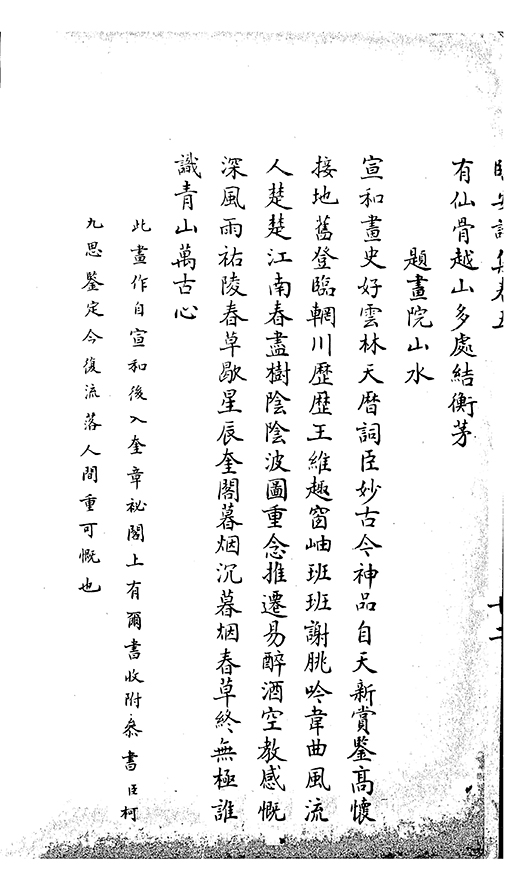 有仙骨越山多處結衡茅
題畫院山水
宣和畫史好雲林天曆詞臣妙古今神品自天新賞鑒高懷
接地舊登臨輞川歷歷王維趣窗岫班班謝朓吟韋曲風流
人楚楚江南春盡樹陰陰波圖重念推遷易醉酒空教感慨
深風雨祐陵春草歇星辰奎閣暮烟沉暮烟春草終無極誰
識青山萬古心
此畫作自宣和後入奎章祕閣上有爾書收附叅書臣柯
九思鑒定今復流落人間重可慨也
十二